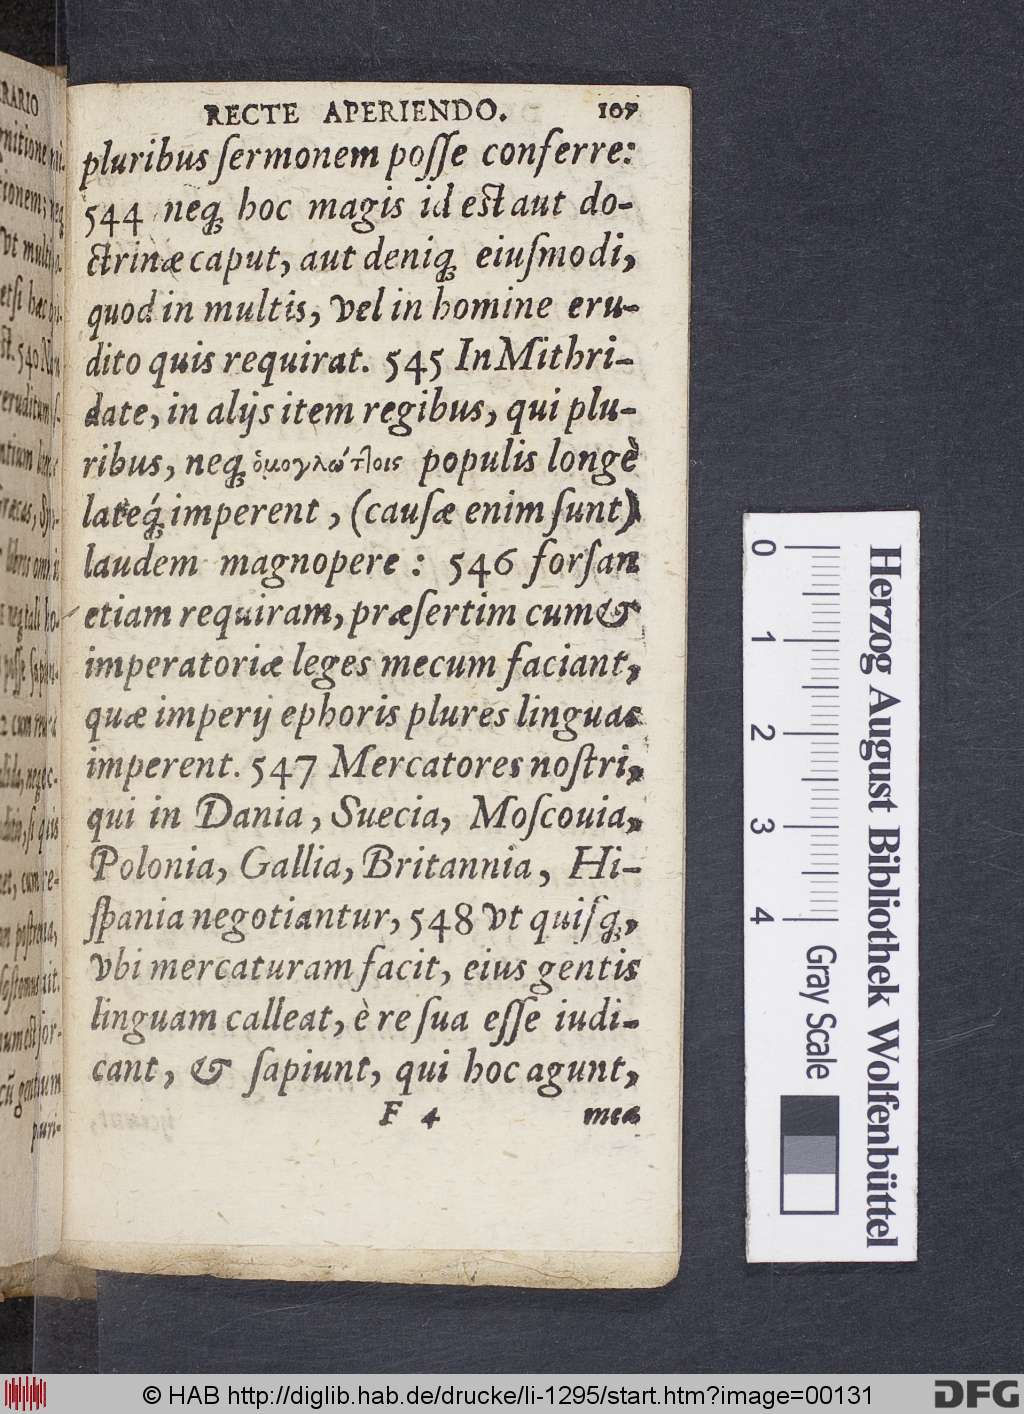 RECTE APERIENDO. 107
pluribus ſermonem poſſe conferre:
544 neq́ꝫ hoc magis id est aut do-
ctrinæ caput, aut deniqꝫ eiuſmodi,
quod in multis, vel in homine eru-
dito quis requirat. 545 In Mithri-
date, in alijs item regibus, qui plu-
ribus, neqꝫ ὁμογλώτ]οις populis longè
lateq́ꝫ imperent, (cauſæ enim ſunt)
laudem magnopere: 546 forſan
etiam requiram, præſertim cum &
imperatoriæ leges mecum faciant,
quæ imperij ephoris plures linguas
imperent. 547 Mercatores noſtri,
qui in Dania, Suecia, Moſcouia,
Polonia, Gallia, Britannia, Hi-
ſpania negotiantur, 548 vt quiſqꝫ,
vbi mercaturam facit, eius gentis
linguam calleat, è re ſua eſſe iudi-
cant, & ſapiunt, qui hoc agunt,
F 4 mea
RARIO
0 1 2 3 4
Gray Scale
Herzog August Bibliothek Wolfenbüttel
© HAB http://diglib.hab.de/drucke/li-1295/start.htm?image=00131
DFG